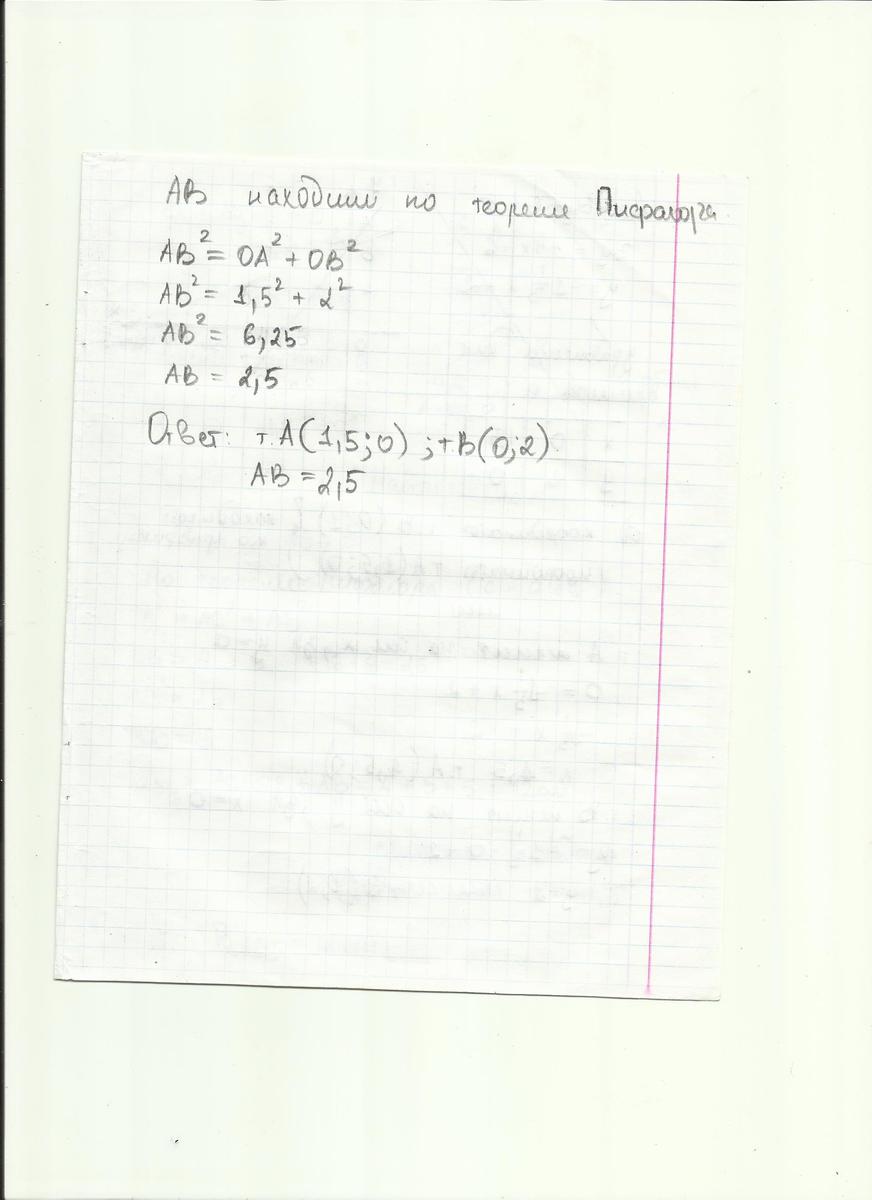 AB находим по теореме Пифагора
AB² = OA² + OB²
AB² = 1,5² + 2²
AB² = 6,25
AB = 2,5
Ответ: т.A(1,5;0) ; т.B(0;2)
AB = 2,5